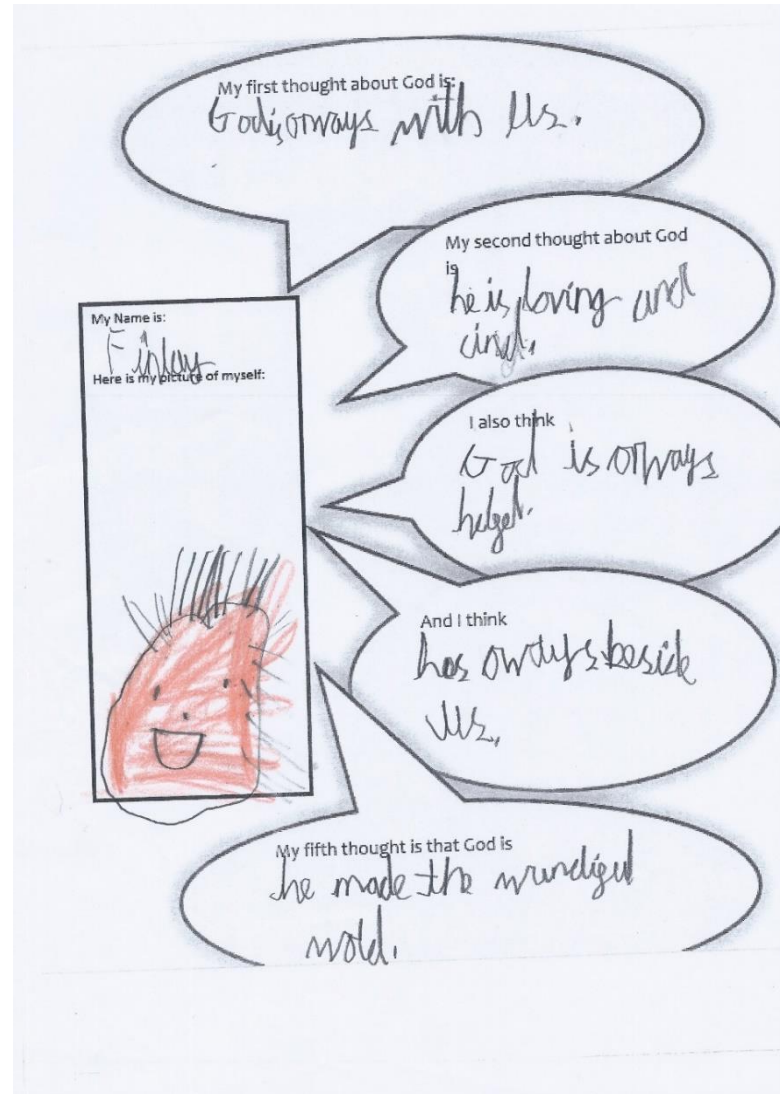 My first thought about God is:
God is orways with us.
My second thought about God
is
he is loving and
cind.
My Name is:
Finlay
Here is my picture of myself:
I also think
God is orways
helgel.
And I think
hes orways beside
us.
My fifth thought is that God is
he made the wundigul
wold.